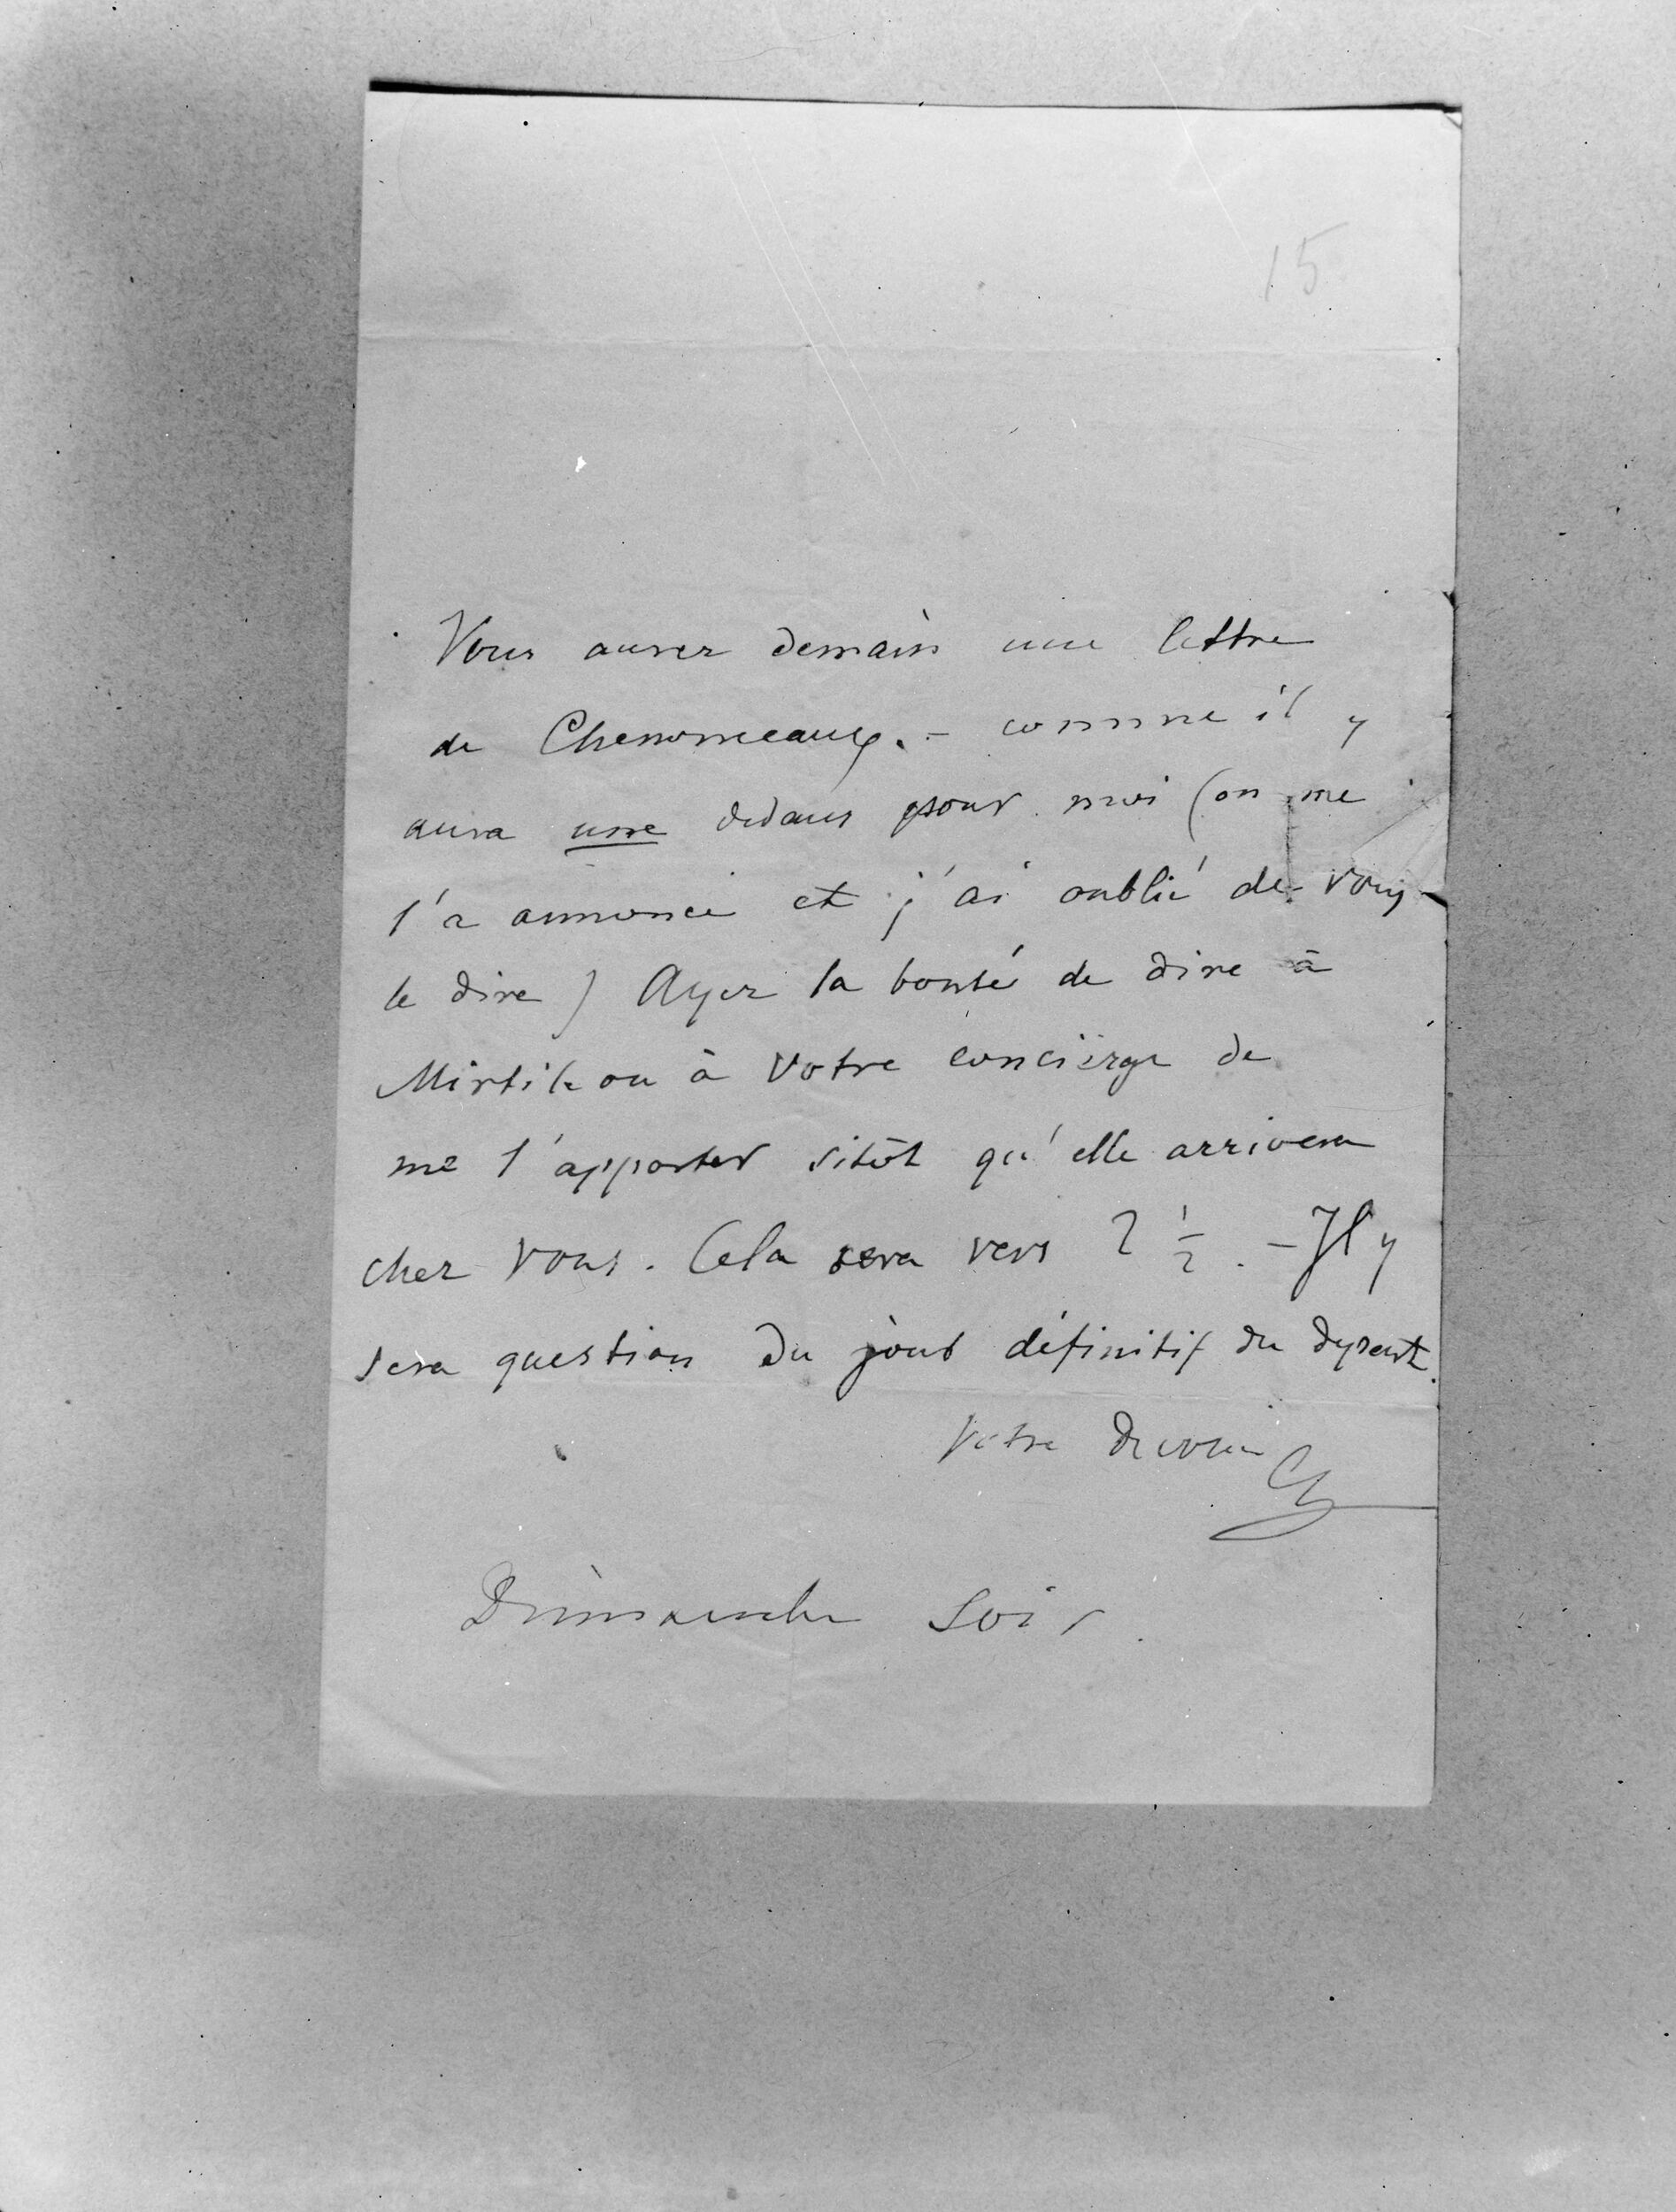 15
Vous aurez demain une lettre
de Chenonceaux. – comme il y
aura une dedans pour moi (on me
l'a annoncé et j'ai oublié de vous
le dire) Ayez la bonté de dire à
Mirtil ou à votre concierge de
me l'apporter sitôt qu'elle arrivera
chez vous. Cela sera vers 2 1/2. – Il y
sera question du jour définitif du départ.
Votre
Dimanche Soir.